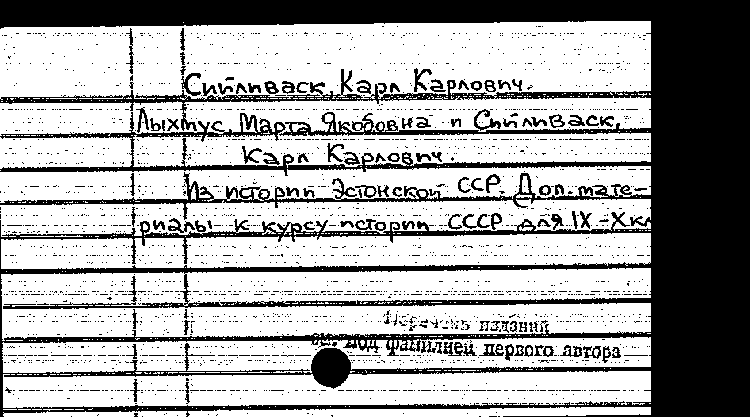 Сийливаск, Карл Карлович.
Лыхмус, Марта Якобовна и Сийливаск,
Карл Карлович.
Из истории Эстонской ССР. Доп. мате-
риалы к курсу истории СССР для IX-X кл
Перечень изданий
см. под фамилией первого автора